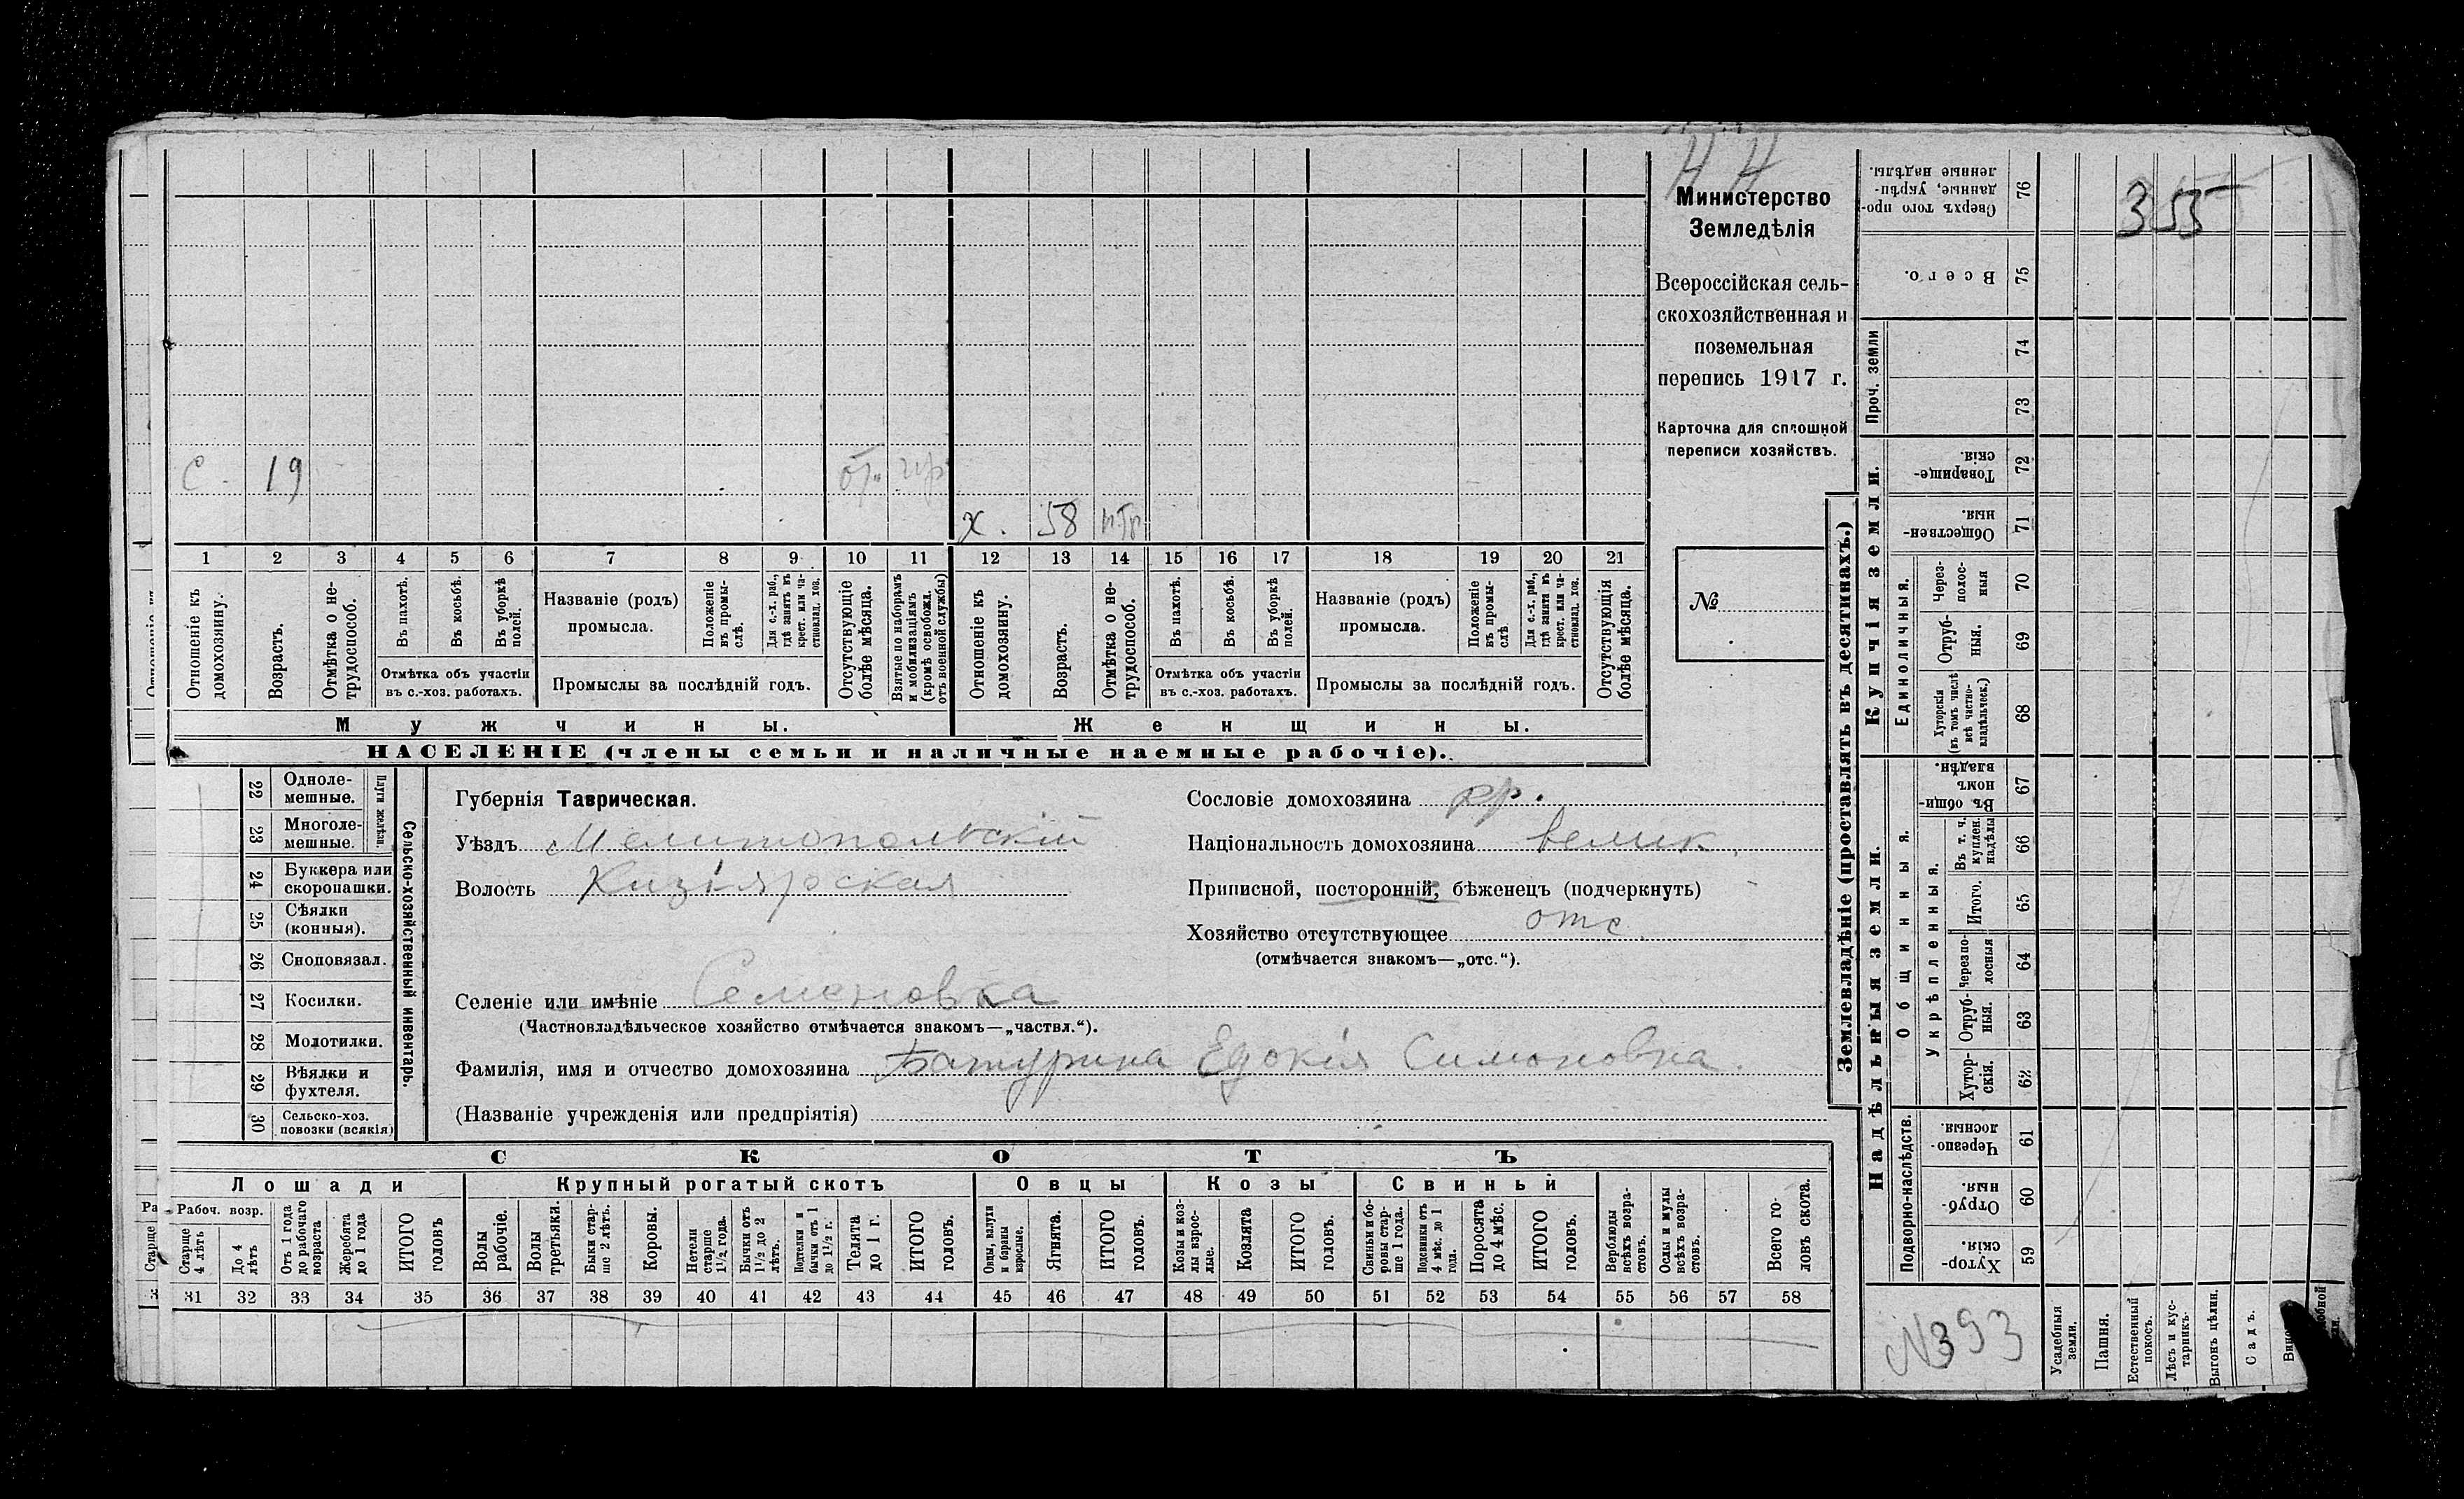 Н Н
Министерство
Земледѣлія
Всероссійская сель-
скохозяйственная и
поземельная
перепись 1917 г.
Карточка для сплошной
переписи хозяйствъ.
№
с. 19
х. 58
1 2 3 4 5 6 7 8 9 10 11 12 13 14 15 16 17 18 19 20 21
Отношеніе къ домохозяину.
Возрастъ.
Отмѣтка о не-трудоспособ.
Въ пахотѣ.
Въ косьбѣ.
Въ уборкѣ полей.
Отмѣтка объ участіи
въ с.-хоз. работахъ.
Названіе (родъ)
промысла.
Положеніе въ промы-слѣ.
Для с.-х. раб., гдѣ занятъ въ крест. или ча-стновлад. хоз.
Промыслы за послѣдній годъ.
Отсутствующіе болѣе мѣсяца.
Взятые по наборамъ и мобилизаціямъ (кромѣ освобожд. отъ военной службы)
Отношеніе къ домохозяину.
Возрастъ.
Отмѣтка о не-трудоспособ.
Въ пахотѣ.
Въ косьбѣ.
Въ уборкѣ полей.
Отмѣтка объ участіи
въ с.-хоз. работахъ.
Названіе (родъ)
промысла.
Положеніе въ промы-слѣ
Для с.-х. раб., гдѣ занята въ крест. или ча-стновлад. хоз.
Промыслы за послѣдній годъ.
Отсутствующія болѣе мѣсяца.
Мужчины.
Женщины.
НАСЕЛЕНІЕ (члены семьи и наличные наемные рабочіе).
Сельско-хозяйственный инвентарь.
Плуги желѣзн.
22 Одноле-мешные.
23 Многоле-мешные.
24 Буккера или скоропашки.
25 Сѣялки (конныя).
26 Сноповязал.
27 Косилки.
28 Молотилки.
29 Вѣялки и фухтеля.
30 Сельско-хоз. повозки (всякія)
Губернія Таврическая.
Уѣздъ Мелитопольскій
Волость Кизіярская
Сословіе домохозяина
Національность домохозяина велик.
Приписной, посторонній, бѣженецъ (подчеркнуть)
Хозяйство отсутствующее отс.
(отмѣчается знакомъ—„отс.“).
Селеніе или имѣніе Семеновка
(Частновладѣльческое хозяйство отмѣчается знакомъ—„частвл.“).
Фамилія, имя и отчество домохозяина Батурина Едокія Симоновна.
(Названіе учрежденія или предпріятія)
СКОТЪ
Лошади
Крупный рогатый скотъ
Овцы
Козы
Свиньи
Рабоч. возр.
Старше 4 лѣтъ
До 4 лѣтъ
Отъ 1 года до рабочаго возраста
Жеребята до 1 года
ИТОГО головъ
Волы рабочіе.
Волы третьяки.
Быки стар-ше 2 лѣтъ.
Коровы.
Нетели старше 1½ года.
Бычки отъ 1½ до 2 лѣтъ.
Подтелки и бычки отъ 1 до 1½ г.
Телята до 1 г.
ИТОГО головъ.
Овцы, валухи и бараны взрослые.
Ягнята.
ИТОГО головъ.
Козы и коз-лы взрос-лые.
Козлята
ИТОГО головъ.
Свиньи и бо-ровы стар-ше 1 года.
Подсвинки отъ 4 мѣс. до 1 года.
Поросята до 4 мѣс.
ИТОГО головъ.
Верблюды всѣхъ возра-стовъ.
Ослы и мулы всѣхъ возра-стовъ.
Всего го-ловъ скота.
31 32 33 34 35 36 37 38 39 40 41 42 43 44 45 46 47 48 49 50 51 52 53 54 55 56 57 58
Землевладѣніе (проставлять въ десятинахъ.)
355
76 Сверхъ того про-данные, укрѣп-ленные надѣлы.
75 Всего.
Проч. земли
74
73
Купчія земли.
72 Товарище-скія.
71 Обществен-ныя.
Единоличныя.
70 Через-полос-ныя
69 Отруб-ныя.
68 Хуторскія (въ томъ числѣ всѣ частно-владѣльческ.)
Надѣльныя земли.
Общинныя.
67 Въ общин-номъ владѣн.
Укрѣпленныя.
66 Въ т. ч. куплен. надѣлы
65 Итого.
64 Черезпо-лосныя
63 Отруб-ныя.
62 Хутор-скія.
Подворно-наслѣдств.
61 Черезпо-лосныя.
60 Отруб-ныя.
59 Хутор-скія.
№393
Усадебныя земли.
Пашня.
Естественный покосъ.
Лѣсъ и кус-тарникъ.
Выгонъ цѣлин.
Садъ.